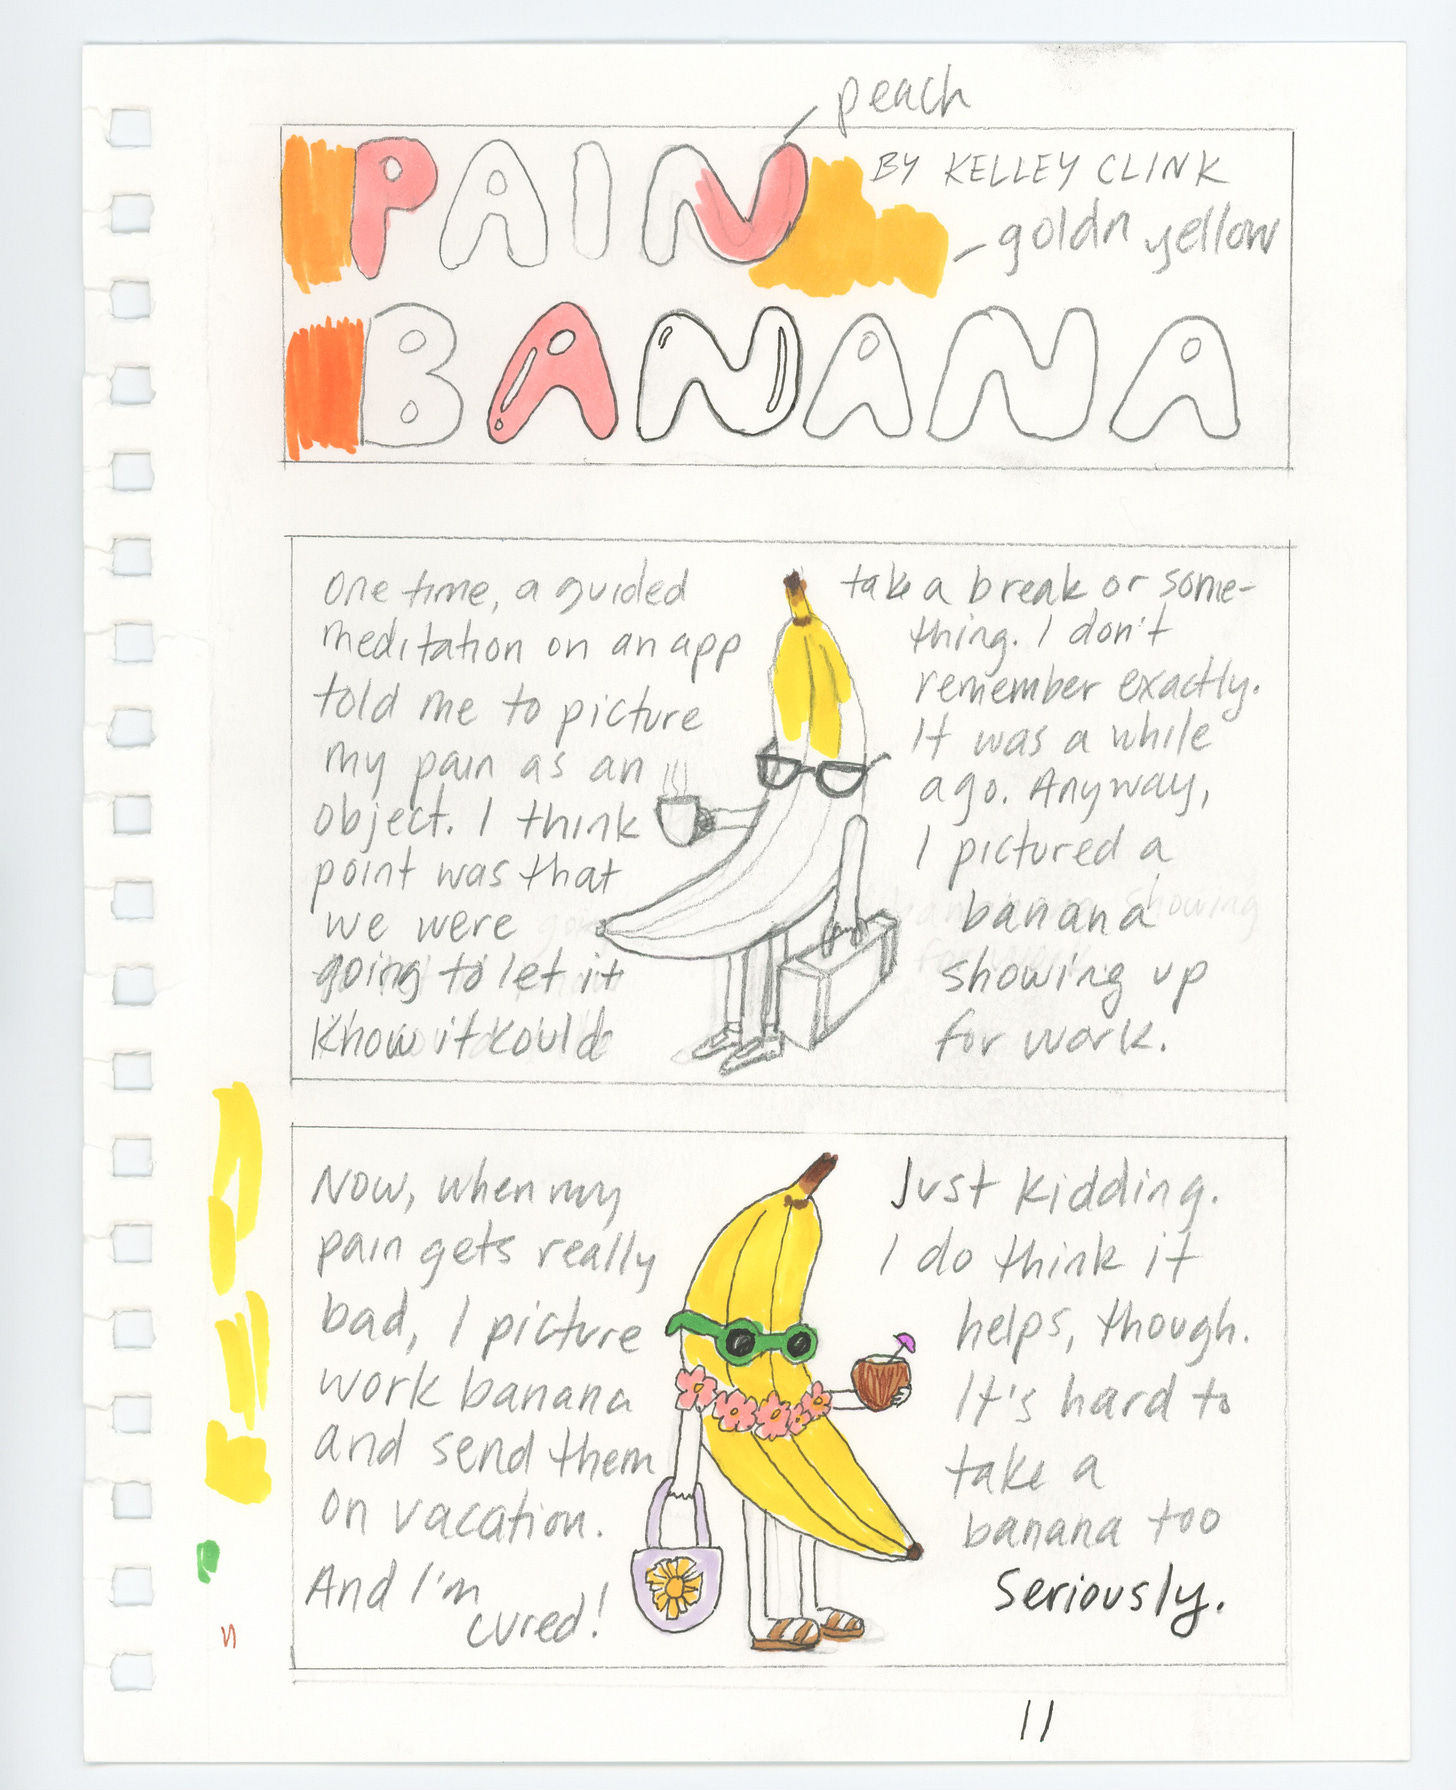 peach
PAIN
BY KELLEY CLINK
goldn yellow
BANANA
One time, a guided
meditation on an app
told me to picture
my pain as an
object. I think
point was that
we were
going to let it
know it could
take a break or some-
thing. I don't
remember exactly.
It was a while
ago. Anyway,
I pictured a
banana
showing up
for work.
Now, when my
pain gets really
bad, I picture
work banana
and send them
on vacation.
And I'm
cured!
Just kidding.
I do think it
helps, though.
It's hard to
take a
banana too
seriously.
11